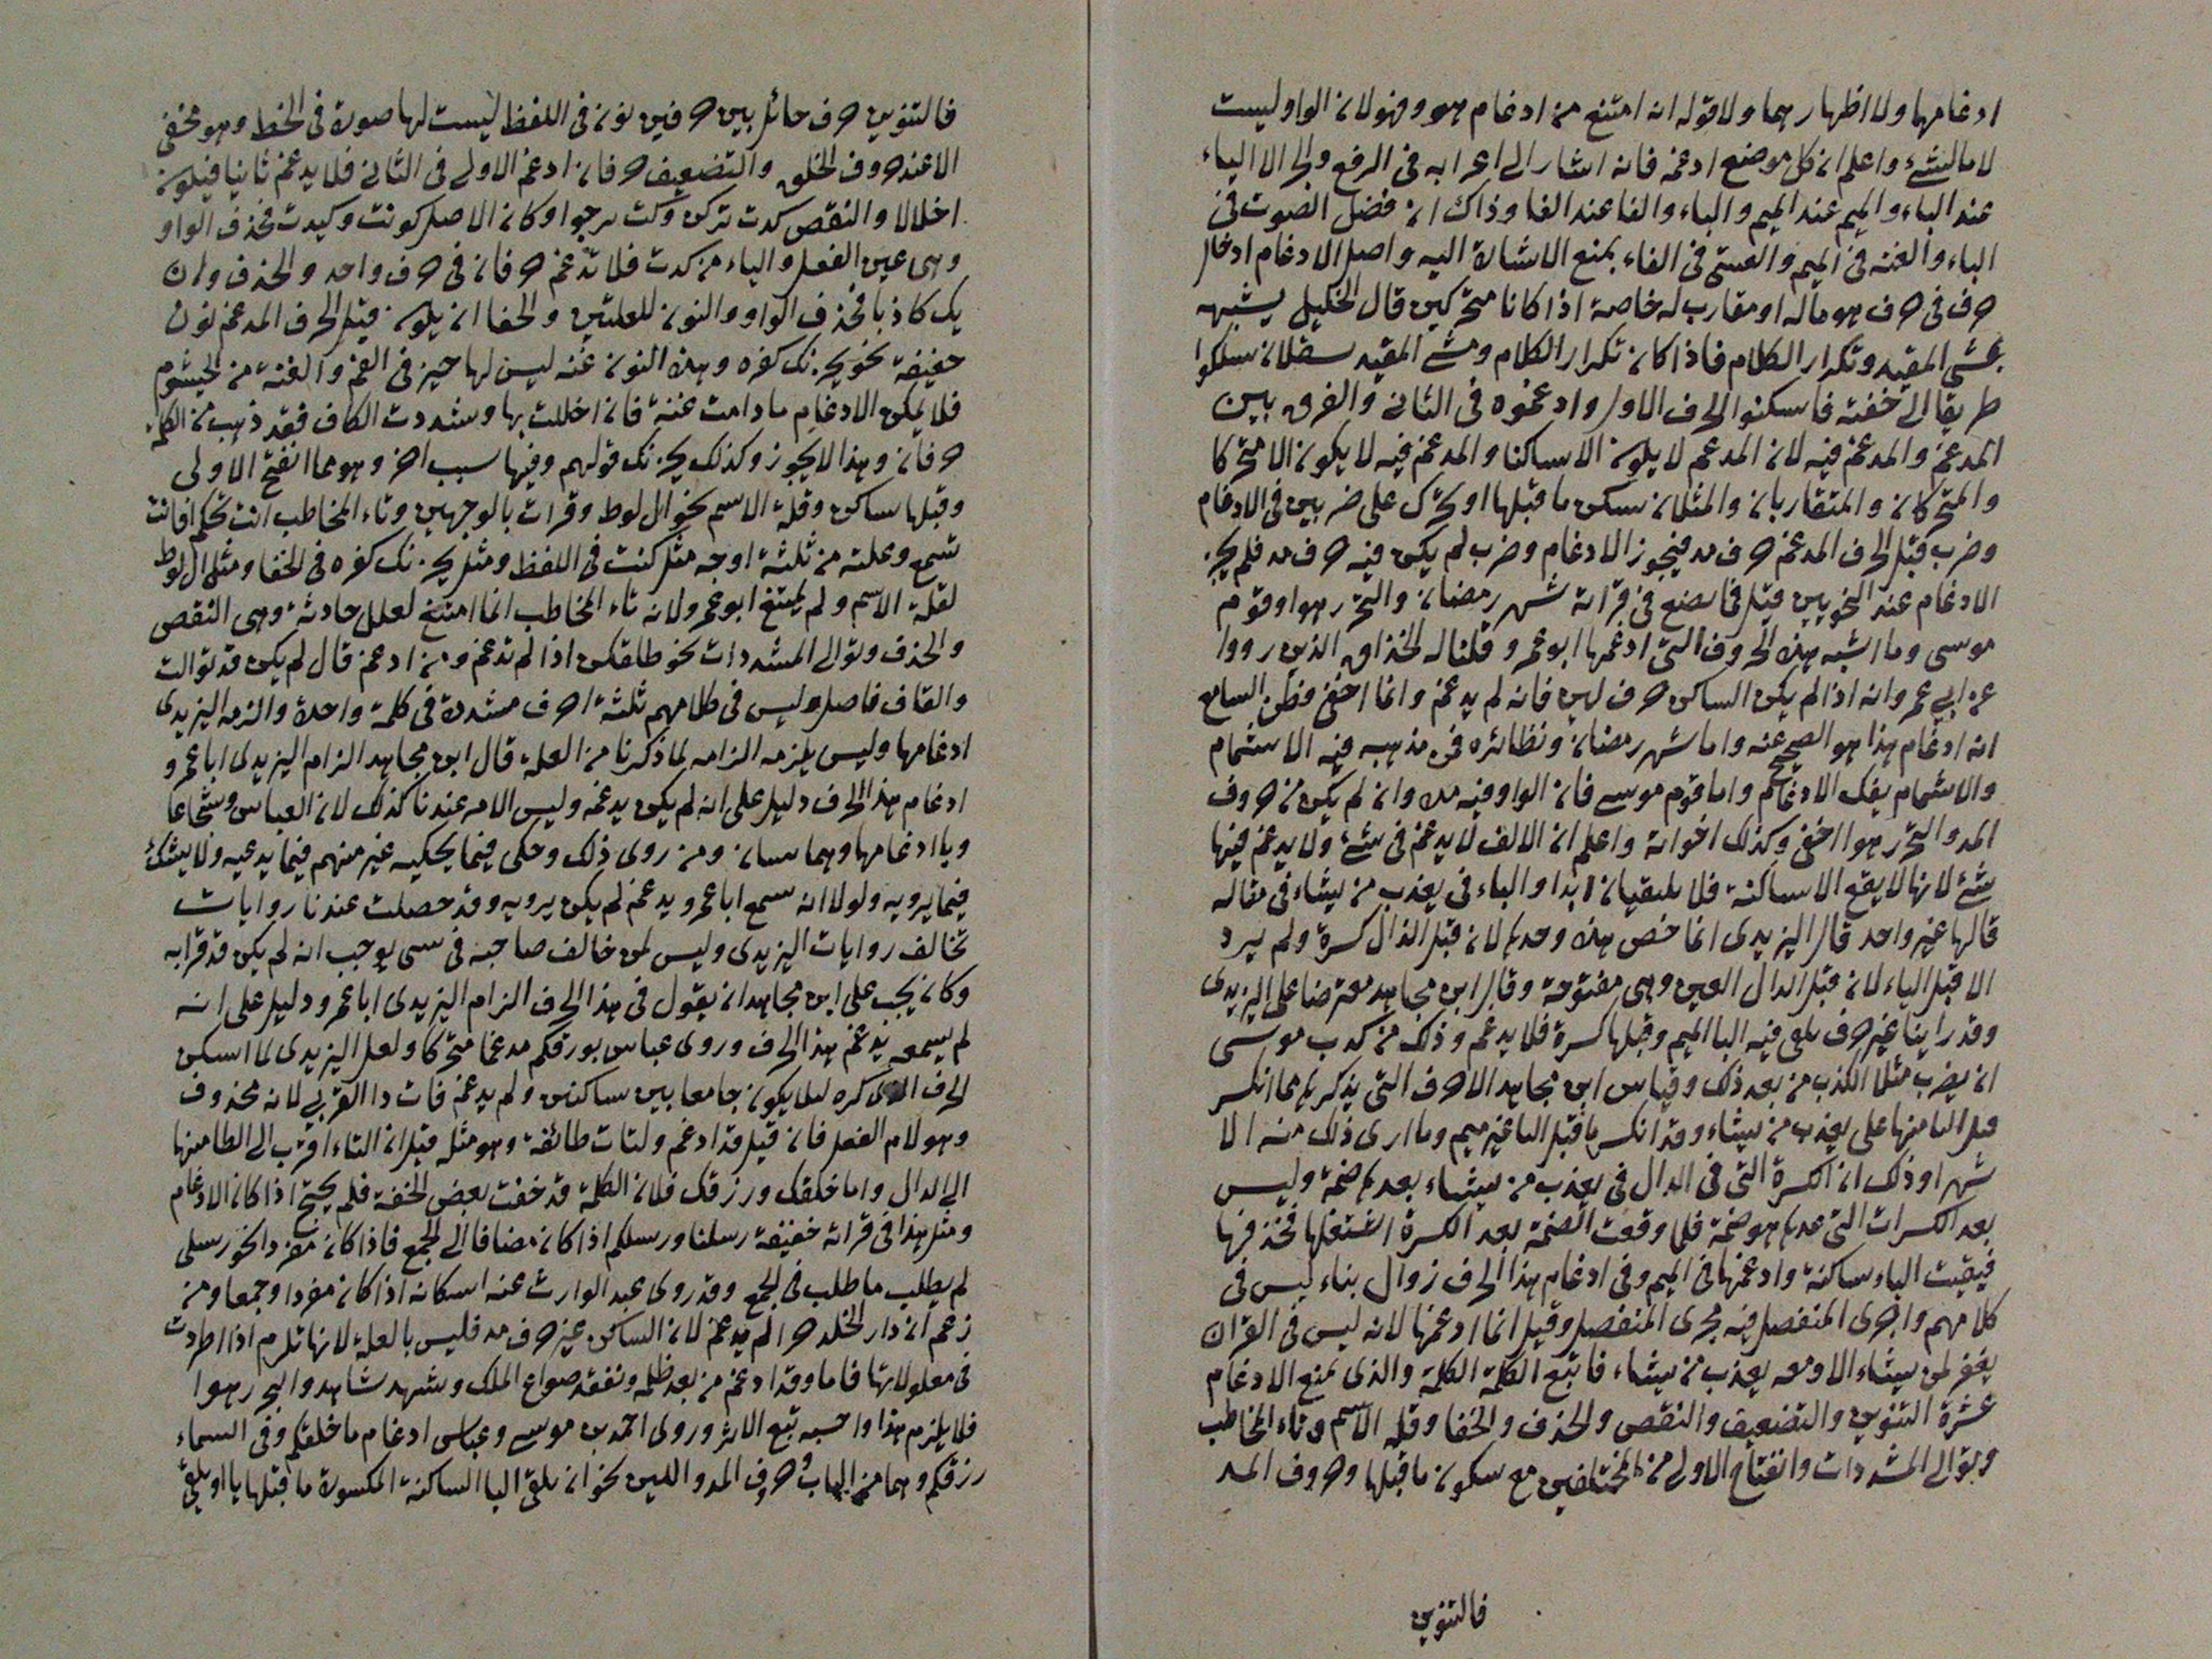 ادغامهما ولا اظهارهما ولا قوله انه امتنع من ادغام هو وفهو لان الواو ليست
لاما لشئ واعلم ان كل موضع ادغمه فانه اشار الى اعرابه فى الرفع والجر الا الباء
عند الباء والميم عند الميم والباء والفا عند الفا وذاك ان فضل الصوت فى
الباء والغنه فى الميم والتفشى فى الفاء يمنع الاشارة اليه واصل الادغام ادخال
حرف فى حرف هو مماثله او مقارب له خاصة اذا كانا متحركين قال الخليل يشبهه
بمشى المقيد وتكرار الكلام فاذا كان تكرار الكلام ومشى المقيد سقلان سلكوا
طريقا الى خفته فاسكنوا الحرف الاول وادغموه فى الثانى والفرق بين
المدغم والمدغم فيه لان المدغم لا يكون الا ساكنا والمدغم فيه لا يكون الا متحركا
والمتحركان والمتقاربان والمثلان سكن ما قبلها او تحرك على ضربين فى الادغام
وضرب قبل الحرف المدغم حرف مد فيجوز الادغام وضرب لم يكن فيه حرف مد فلم يجز
الادغام عند النحويين قيل فما نصنع فى قراءة شهر رمضان والبحر رهوا وقوم
موسى وما اشبه هذه الحروف التى ادغمها ابو عمرو قلنا له الحذاق الذين رووا
عن ابى عمرو انه اذا لم يكن الساكن حرف لين فانه لم يدغم وانما اخفى فظن السامع
انه ادغام هذا هو الصحيح عنه واما شهر رمضان ونظائره فى مذهبه فيه الاشمام
والاشمام يفك الادغام واما قوم موسى فان الواو فيه مد وان لم يكن من حروف
المد والبحر رهوا اخفى وكذلك اخواته واعلم ان الالف لا يدغم فى شئ ولا يدغم فيها
شئ لانها لا يقع الا ساكنة فلا يلتقيان ابدا والباء فى يعذب من يشاء فى مقاله
قالها غير واحد قال اليزيدى انما خص هذه وحدها لان قبل الذال كسرة ولم يرد
الا قبل الباء لان قبل الدال العين وهى مفتوحة وقال ابن مجاهد معترضا على اليزيدى
وقد راينا غير حرف يلقى فيه الباء الميم وقبلها كسرة فلا يدغم وذلك من كذب موسى
ان يضرب مثلا الكذب من بعد ذلك وقياس ابن مجاهد الاحرف التى يذكرها مما انكسر
قبل الباء منها على يعذب من يشاء وقد انكسر ما قبل الباء غير ميم وما ارى ذلك منه الا
سهوا وذلك ان الكسرة التى فى الدال فى يعذب من يشاء بعدها ضمة وليس
بعد الكسرات التى عدها هو ضمة فلما وقعت الضمة بعد الكسرة اشتغلها فحذفها
فبقيت الباء ساكنة وادغمها فى الميم وفى ادغام هذا الحرف زوال بناء ليس فى
كلامهم واجرى المنفصل فيه مجرى المتفصل وقيل انما ادغمها لانه ليس فى القران
يغفر لمن يشاء الا ومعه يعذب من يشاء فاتبع الكلمة الكلمة والذى يمنع الادغام
عشرة التنوين والتضعيف والنقص والحذف والخفا وقلة الاسم وتاء المخاطب
وتوالى المشددات وانفتاح الاولى من المختلفين مع سكون ما قبلها وحروف المد
فالتنوين
فالتنوين حرف حائل بين حرفين نون فى اللفظ ليست لها صورة فى الخط وهو مخفى
الا عند حروف الحلق والتضعيف حرفان ادغم الاولى فى الثانى فلا يدغم ثانيا فيكون
اخلالا والنقص كدت تركن وكنت ترجوا وكان الاصل كونت وكيدت فحذف الواو
وهى عين الفعل والياء من كدت فلا تدغم حرفان فى حرف واحد والحذف وان
يك كاذبا فحذف الواو والنون للعلتين والخفا ان يكون قبل الحرف المدغم نون
خفيفة نحو يحزنك كفره وهذه النون غنه ليس لها حيز فى الفم والغنة من الخيشوم
فلا يمكن الادغام ما دامت غنة فان اخللت بها وشددت الكاف فقد ذهب من الكلمة
حرفان وهذا لا يجوز وكذلك يحزنك قولهم وفيها سبب اخر وهو مما انفتح الاولى
وقبلها ساكن وقلة الاسم نحو ال لوط وقرات بالوجهين وتاء المخاطب انت تحكم افانت
تسمع وعلته من ثلثة اوجه مثل كنت فى اللفظ ومثل يحزنك كفره فى الخفا ومثل ال لوط
لقلة الاسم ولم يمتنع ابو عمرو لانه تاء المخاطب انما امتنع لعلل حادثة وهى النقص
والحذف وتوالى المشددات نحو طلقكن اذا لم تدغم ومن ادغم قال لم يكن قد توالت
والقاف فاصل وليس فى كلامهم ثلثة احرف مشددة فى كلمة واحدة والزمه اليزيدى
ادغامها وليس يلزمه الزامه لما ذكرنا من العلة قال ابن مجاهد الزام اليزيدى ابا عمرو
ادغام هذا الحرف دليل على انه لم يكن يدغمه وليس الامر عندنا كذلك لان العباس وشجاعا
رويا ادغامها وهما سيان ومن روى ذلك وحكى فيما يحكيه غير متهم فيما يدعيه ولا يشك
فيما يرويه ولولا انه سمع ابا عمرو يدغم لم يكن يرويه وقد حصلت عندنا روايات
تخالف روايات اليزيدى وليس لمن خالف صاحبه فى شى يوجب انه لم يكن قد قرا به
وكان يجب على ابن مجاهد ان يقول فى هذا الحرف الزام اليزيدى ابا عمرو دليل على انه
لم يسمعه يدغم هذا الحرف وروى عباس بورقكم مدغما متحركا ولعل اليزيدى لما اسكن
الحرف الذى كره ليلا يكون جامعا بين ساكنين ولم يدغم فات ذا القربى لانه محذوف
وهو لام الفعل فان قيل قد ادغم ولتات طائفة وهو مثله قيل ان التاء اقرب الى الطا منها
الى الدال واما خلقك ورزقك فلان الكلمة قد خفت بعض الخفة فلم يحتج اذا كان الادغام
ومثل هذا فى قراءة خفيفة رسلنا ورسلكم اذا كان مضافا الى الجمع فاذا كان مفردا نحو رسلى
لم يطلب ما طلب فى الجمع وقد روى عبد الوارث عنه اسكانه اذا كان مفردا وجمعا ومن
زعم ان دار الخلد جزا لم يدغم لان الساكن غير حرف مد فليس بالعلة لانها تلزم اذا اطردت
فى معلولاتها فاما وقد ادغم من بعد ظلمه ونفقد صواع الملك وشهد شاهد والبحر رهوا
فلا يلزم هذا واحسبه تتبع الاثر وروى احمد بن موسى وعباس ادغام ما خلقكم وفى السماء
رزقكم وهما من الباب وحروف المد واللين نحو ان يلقى اليا الساكنة المكسورة ما قبلها يا او يلقى